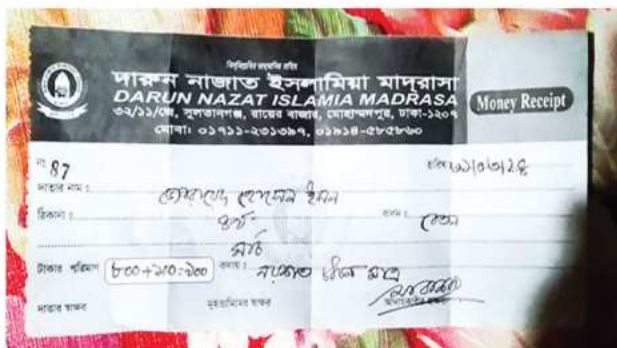 বিসমিল্লাহির রাহমানির রাহিম
দারুন নাজাত ইসলামিয়া মাদ্রাসা
DARUN NAZAT ISLAMIA MADRASA
Money Receipt
৩২/১১/জে, সুলতানগঞ্জ, রায়ের বাজার, মোহাম্মদপুর, ঢাকা-১২০৭
মোবা: ০১৭১১-২৩১৩৯৭, ০১৯১৪-৫৮৫৮৬০
নং 87
তারিখ
দাতার নাম : হোসেন ইমন
ঠিকানা : বাবদ : বেতন
মার্চ
টাকার পরিমাণ ৮০০+১০০=৯০০ কথায় : নয়শত টাকা মাত্র
দাতার স্বাক্ষর মুহতামিমের স্বাক্ষর আদায়কারীর স্বাক্ষর